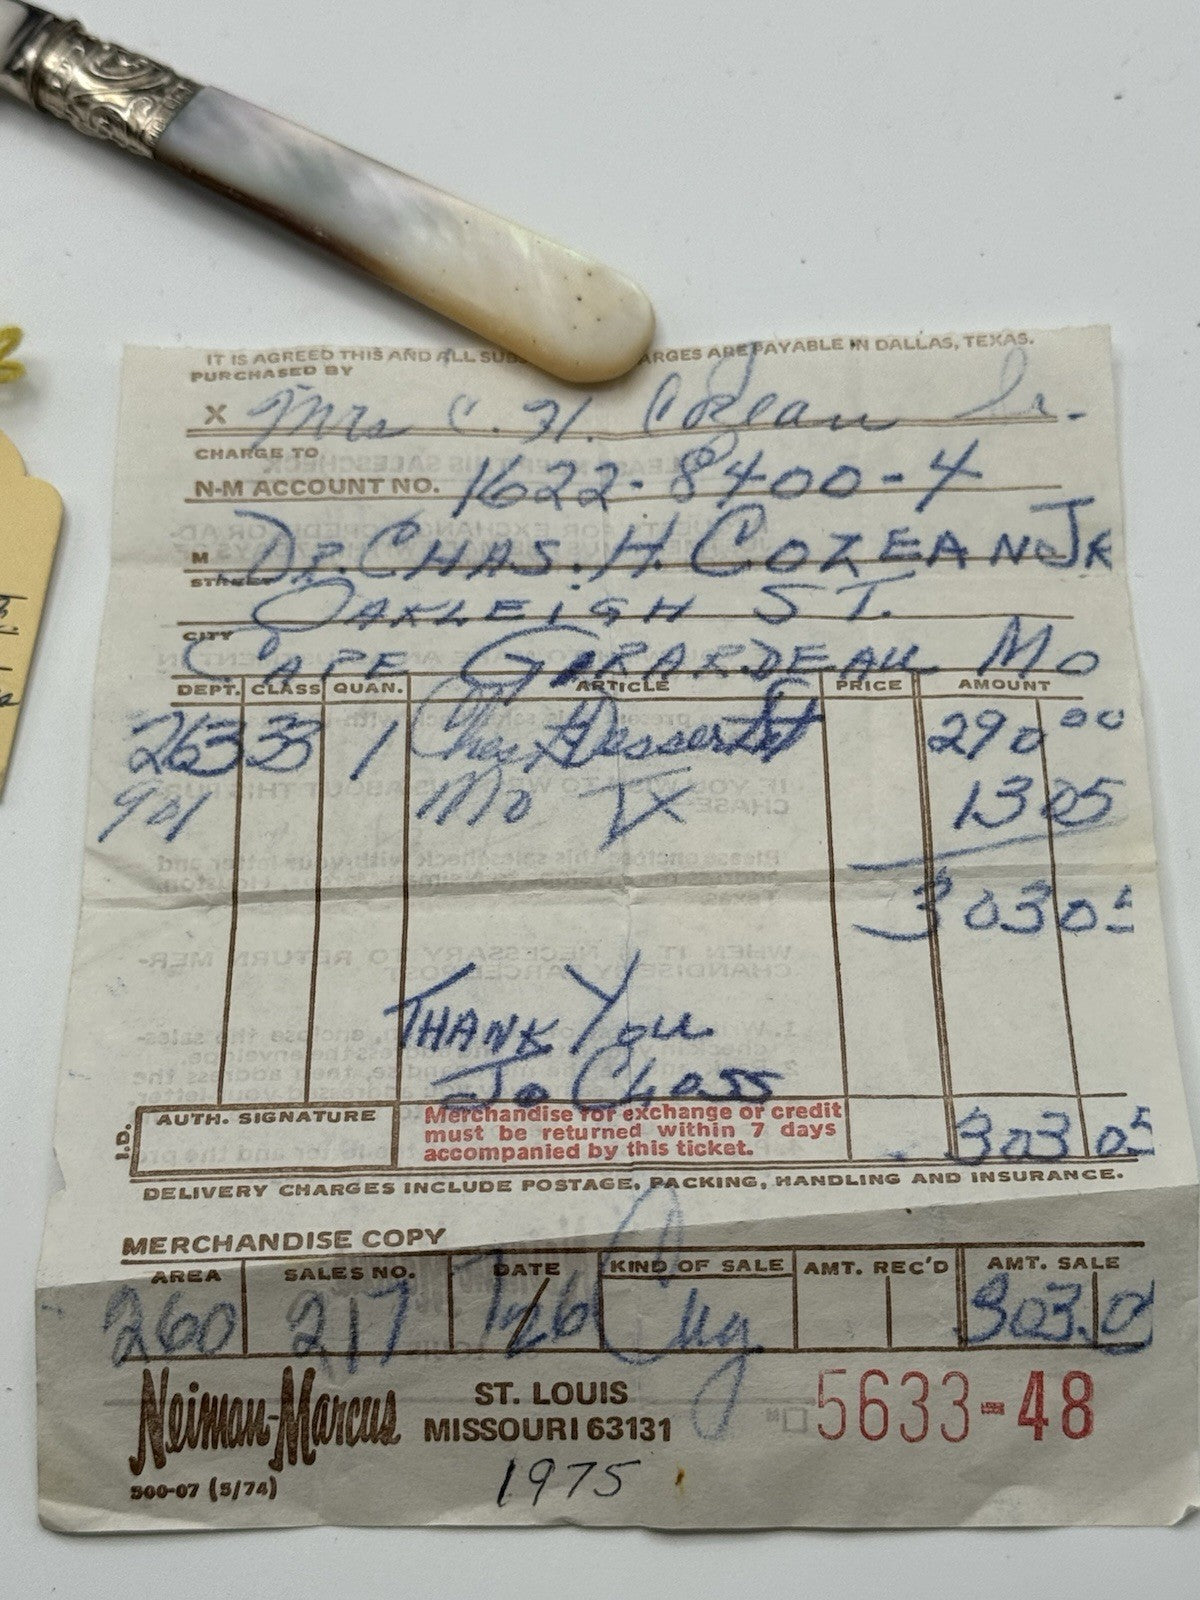 IT IS AGREED THIS AND ALL SUBS ARGES ARE PAYABLE IN DALLAS, TEXAS.
PURCHASED BY
X Mrs C. H. Cozean Jr.
CHARGE TO
N-M ACCOUNT NO. 1622-8400-4
M DR. CHAS. H. COZEAN JR
STREET OAKLEIGH ST.
CITY CAPE GIRARDEAU MO
DEPT. CLASS QUAN. ARTICLE PRICE AMOUNT
263 33 1 Chest Dessert Set 290 00
901 Mo TX 13 05
303 05
THANK YOU
Jo Choss
I.D. AUTH. SIGNATURE
Merchandise for exchange or credit
must be returned within 7 days
accompanied by this ticket.
303 05
DELIVERY CHARGES INCLUDE POSTAGE, PACKING, HANDLING AND INSURANCE.
MERCHANDISE COPY
AREA SALES NO. DATE KIND OF SALE AMT. REC'D AMT. SALE
260 217 7/26 Chg 303.0
Neiman-Marcus ST. LOUIS
MISSOURI 63131
5633-48
500-07 (5/74)
1975